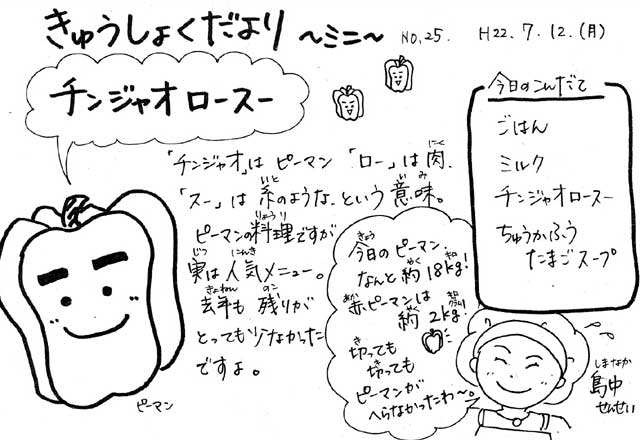 きゅうしょくだより ～ミニ～ NO.25. H22.7.12.(月)
チンジャオロースー
「チンジャオ」は ピーマン 「ロー」は 肉、
「スー」は 糸のような、という 意味。
ピーマンの料理ですが
実は人気メニュー。
去年も 残りが
とっても少なかった
ですよ。
ピーマン
今日のピーマン、
なんと 約18kg!
赤ピーマンは
約2kg!
切っても
切っても
ピーマンが
へらなかったわ～。
今日のこんだて
ごはん
ミルク
チンジャオロースー
ちゅうかふう
たまごスープ
島中
せんせい